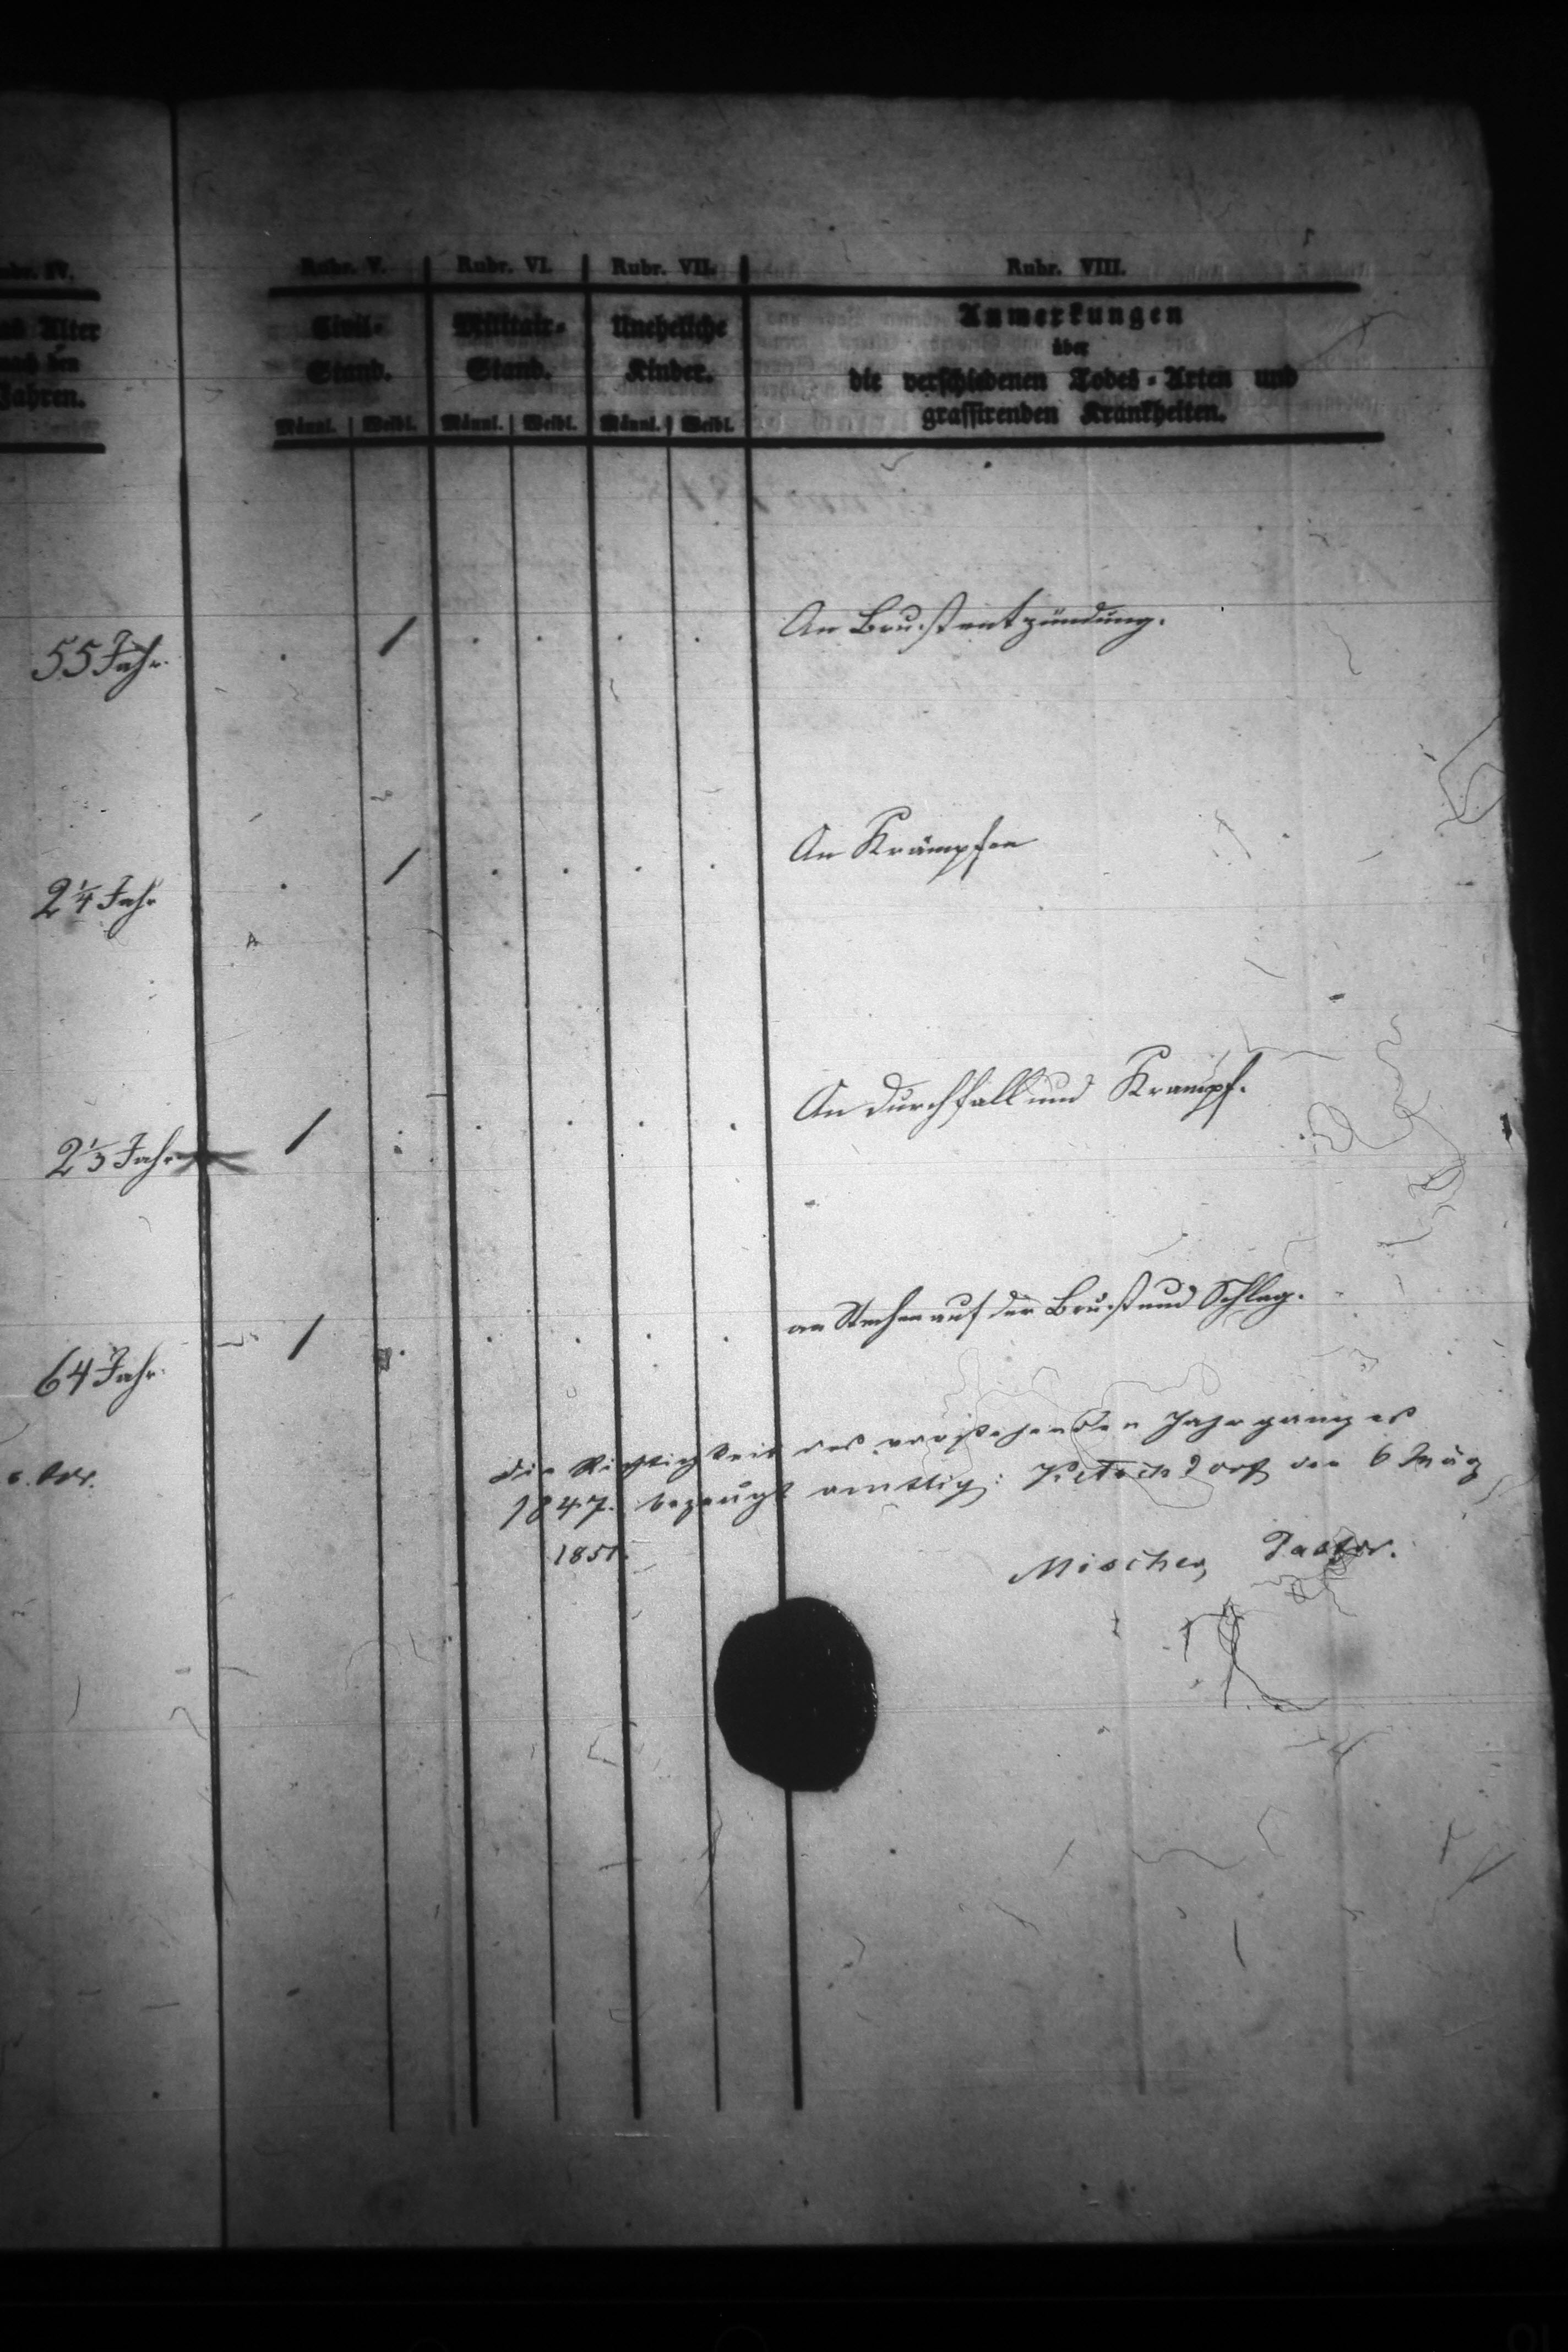 Rubr. V. Rubr. VI. Rubr. VII. Rubr. VIII.
Alter
Jahren.
Civil-
Stand.
Männl. Weibl.
Militair-
Stand.
Männl. Weibl.
Uneheliche
Kinder.
Männl. Weibl.
Anmerkungen
über
die verschiedenen Todes-Arten und
grassirenden Krankheiten.
55 Jahr. / An Brustentzündung.
2 1/4 Jahr / An Krämpfen
2 1/3 Jahr / An Durchfall und Krampf.
64 Jahr. / an Stechen auf der Brust und Schlag.
Die Richtigkeit des vorstehenden Jahrganges
1847. bezeugt amtlich: den 6
1851.
Pastor.